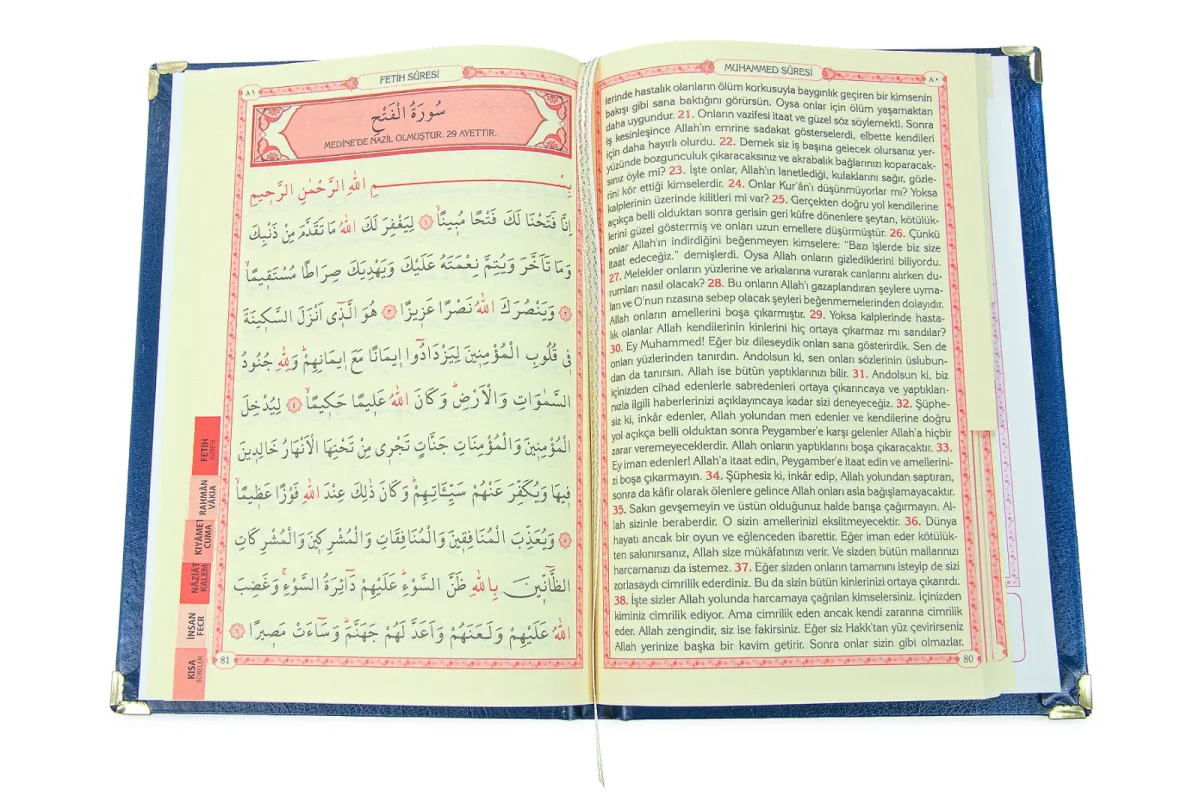 MUHAMMED SÛRESİ
٨٠
lerinde hastalık olanların ölüm korkusuyla baygınlık geçiren bir kimsenin
bakışı gibi sana baktığını görürsün. Oysa onlar için ölüm yaşamaktan
daha uygundur. 21. Onların vazifesi itaat ve güzel söz söylemekti. Sonra
iş kesinleşince Allah'ın emrine sadakat gösterselerdi, elbette kendileri
için daha hayırlı olurdu. 22. Demek siz iş başına gelecek olursanız yer-
yüzünde bozgunculuk çıkaracaksınız ve akrabalık bağlarınızı koparacak-
sınız öyle mi? 23. İşte onlar, Allah'ın lanetlediği, kulaklarını sağır, gözle-
rini kör ettiği kimselerdir. 24. Onlar Kur'ân'ı düşünmüyorlar mı? Yoksa
kalplerinin üzerinde kilitleri mi var? 25. Gerçekten doğru yol kendilerine
açıkça belli olduktan sonra gerisin geri küfre dönenlere şeytan, kötülük-
lerini güzel göstermiş ve onları uzun emellere düşürmüştür. 26. Çünkü
onlar Allah'ın indirdiğini beğenmeyen kimselere: "Bazı işlerde biz size
itaat edeceğiz." demişlerdi. Oysa Allah onların gizlediklerini biliyordu.
27. Melekler onların yüzlerine ve arkalarına vurarak canlarını alırken du-
rumları nasıl olacak? 28. Bu onların Allah'ı gazaplandıran şeylere uyma-
ları ve O'nun rızasına sebep olacak şeyleri beğenmemelerinden dolayıdır.
Allah onların amellerini boşa çıkarmıştır. 29. Yoksa kalplerinde hasta-
lık olanlar Allah kendilerinin kinlerini hiç ortaya çıkarmaz mı sandılar?
30. Ey Muhammed! Eğer biz dileseydik onları sana gösterirdik. Sen de
onları yüzlerinden tanırdın. Andolsun ki, sen onları sözlerinin üslubun-
dan da tanırsın. Allah ise bütün yaptıklarınızı bilir. 31. Andolsun ki, biz
içinizden cihad edenlerle sabredenleri ortaya çıkarıncaya ve yaptıkları-
nızla ilgili haberlerinizi açıklayıncaya kadar sizi deneyeceğiz. 32. Şüphe-
siz ki, inkâr edenler, Allah yolundan men edenler ve kendilerine doğru
yol açıkça belli olduktan sonra Peygamber'e karşı gelenler Allah'a hiçbir
zarar veremeyeceklerdir. Allah onların yaptıklarını boşa çıkaracaktır. 33.
Ey iman edenler! Allah'a itaat edin, Peygamber'e itaat edin ve amellerini-
zi boşa çıkarmayın. 34. Şüphesiz ki, inkâr edip, Allah yolundan saptıran,
sonra da kâfir olarak ölenlere gelince Allah onları asla bağışlamayacaktır.
35. Sakın gevşemeyin ve üstün olduğunuz halde barışa çağırmayın. Al-
lah sizinle beraberdir. O sizin amellerinizi eksiltmeyecektir. 36. Dünya
hayatı ancak bir oyun ve eğlenceden ibarettir. Eğer iman eder kötülük-
ten sakınırsanız, Allah size mükâfatınızı verir. Ve sizden bütün mallarınızı
harcamanızı da istemez. 37. Eğer sizden onların tamamını isteyip de sizi
zorlasaydı cimrilik ederdiniz. Bu da sizin bütün kinlerinizi ortaya çıkarırdı.
38. İşte sizler Allah yolunda harcamaya çağrılan kimselersiniz. İçinizden
kiminiz cimrilik ediyor. Ama cimrilik eden ancak kendi zararına cimrilik
eder. Allah zengindir, siz ise fakirsiniz. Eğer siz Hakk'tan yüz çevirirseniz
Allah yerinize başka bir kavim getirir. Sonra onlar sizin gibi olmazlar.
80
FETİH SÛRESİ
٨١
سُورَةُ الْفَتْحِ
MEDİNE'DE NAZİL OLMUŞTUR. 29 AYETTİR.
بِسْمِ اللهِ الرَّحْمٰنِ الرَّحٖيمِ
اِنَّا فَتَحْنَا لَكَ فَتْحًا مُبٖينًاۙ ﴿١﴾ لِيَغْفِرَ لَكَ اللهُ مَا تَقَدَّمَ مِنْ ذَنْبِكَ
وَمَا تَاَخَّرَ وَيُتِمَّ نِعْمَتَهُ عَلَيْكَ وَيَهْدِيَكَ صِرَاطًا مُسْتَقٖيمًاۙ
﴿٢﴾ وَيَنْصُرَكَ اللهُ نَصْرًا عَزٖيزًا ﴿٣﴾ هُوَ الَّذٖٓى اَنْزَلَ السَّكٖينَةَ
فٖى قُلُوبِ الْمُؤْمِنٖينَ لِيَزْدَادُٓوا اٖيمَانًا مَعَ اٖيمَانِهِمْؕ وَلِلّٰهِ جُنُودُ
السَّمٰوَاتِ وَالْاَرْضِؕ وَكَانَ اللهُ عَلٖيمًا حَكٖيمًاۙ ﴿٤﴾ لِيُدْخِلَ
الْمُؤْمِنٖينَ وَالْمُؤْمِنَاتِ جَنَّاتٍ تَجْرٖى مِنْ تَحْتِهَا الْاَنْهَارُ خَالِدٖينَ
فٖيهَا وَيُكَفِّرَ عَنْهُمْ سَيِّـَٔاتِهِمْؕ وَكَانَ ذٰلِكَ عِنْدَ اللهِ فَوْزًا عَظٖيمًاۙ
﴿٥﴾ وَيُعَذِّبَ الْمُنَافِقٖينَ وَالْمُنَافِقَاتِ وَالْمُشْرِكٖينَ وَالْمُشْرِكَاتِ
الظَّٓانّٖينَ بِاللهِ ظَنَّ السَّوْءِؕ عَلَيْهِمْ دَٓائِرَةُ السَّوْءِۚ وَغَضِبَ
اللهُ عَلَيْهِمْ وَلَعَنَهُمْ وَاَعَدَّ لَهُمْ جَهَنَّمَؕ وَسَٓاءَتْ مَصٖيرًا ﴿٦﴾
81
FETİH
SÛRESİ
RAHMÂN
VÂKIA
KIYÂMET
CUMA
NÂZİÂT
KALEM
İNSAN
FECR
KISA
SÛRELER